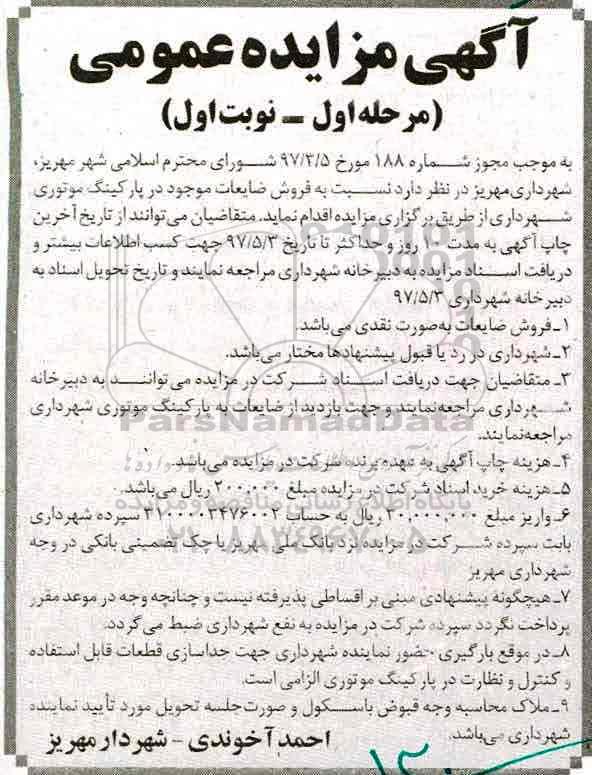 آگهی مزایده عمومی
(مرحله اول ـ نوبت اول)
به موجب مجوز شماره ۱۸۸ مورخ ۹۷/۳/۵ شورای محترم اسلامی شهر مهریز،
شهرداری مهریز در نظر دارد نسبت به فروش ضایعات موجود در پارکینگ موتوری
شهرداری از طریق برگزاری مزایده اقدام نماید. متقاضیان می‌توانند از تاریخ آخرین
چاپ آگهی به مدت ۱۰ روز و حداکثر تا تاریخ ۹۷/۵/۳ جهت کسب اطلاعات بیشتر و
دریافت اسناد مزایده به دبیرخانه شهرداری مراجعه نمایند و تاریخ تحویل اسناد به
دبیرخانه شهرداری ۹۷/۵/۳
۱ـ فروش ضایعات به‌صورت نقدی می‌باشد.
۲ـ شهرداری در رد یا قبول پیشنهادها مختار می‌باشد.
۳ـ متقاضیان جهت دریافت اسناد شرکت در مزایده می‌توانند به دبیرخانه
شهرداری مراجعه نمایند و جهت بازدید از ضایعات به پارکینگ موتوری شهرداری
مراجعه نمایند.
ParsNamadData
۴ـ هزینه چاپ آگهی به عهده برنده شرکت در مزایده می‌باشد.
۵ـ هزینه خرید اسناد شرکت در مزایده مبلغ ۲۰۰,۰۰۰ ریال می‌باشد.
پایگاه اطلاع رسانی مناقصه و مزایده
۶ـ واریز مبلغ ۳۰,۰۰۰,۰۰۰ ریال به حساب سپرده شهرداری
بابت سپرده شرکت در مزایده نزد بانک ملی مهریز یا چک تضمینی بانکی در وجه
شهرداری مهریز
۰۲۱-۸۸۳۴۹۶۷۰-۵
۷ـ هیچگونه پیشنهادی مبنی بر اقساطی پذیرفته نیست و چنانچه وجه در موعد مقرر
پرداخت نگردد سپرده شرکت در مزایده به نفع شهرداری ضبط می‌گردد.
۸ـ در موقع بارگیری حضور نماینده شهرداری جهت جداسازی قطعات قابل استفاده
و کنترل و نظارت در پارکینگ موتوری الزامی است.
۹ـ ملاک محاسبه وجه قبوض باسکول و صورت‌جلسه تحویل مورد تأیید نماینده
شهرداری می‌باشد.
احمد آخوندی - شهردار مهریز